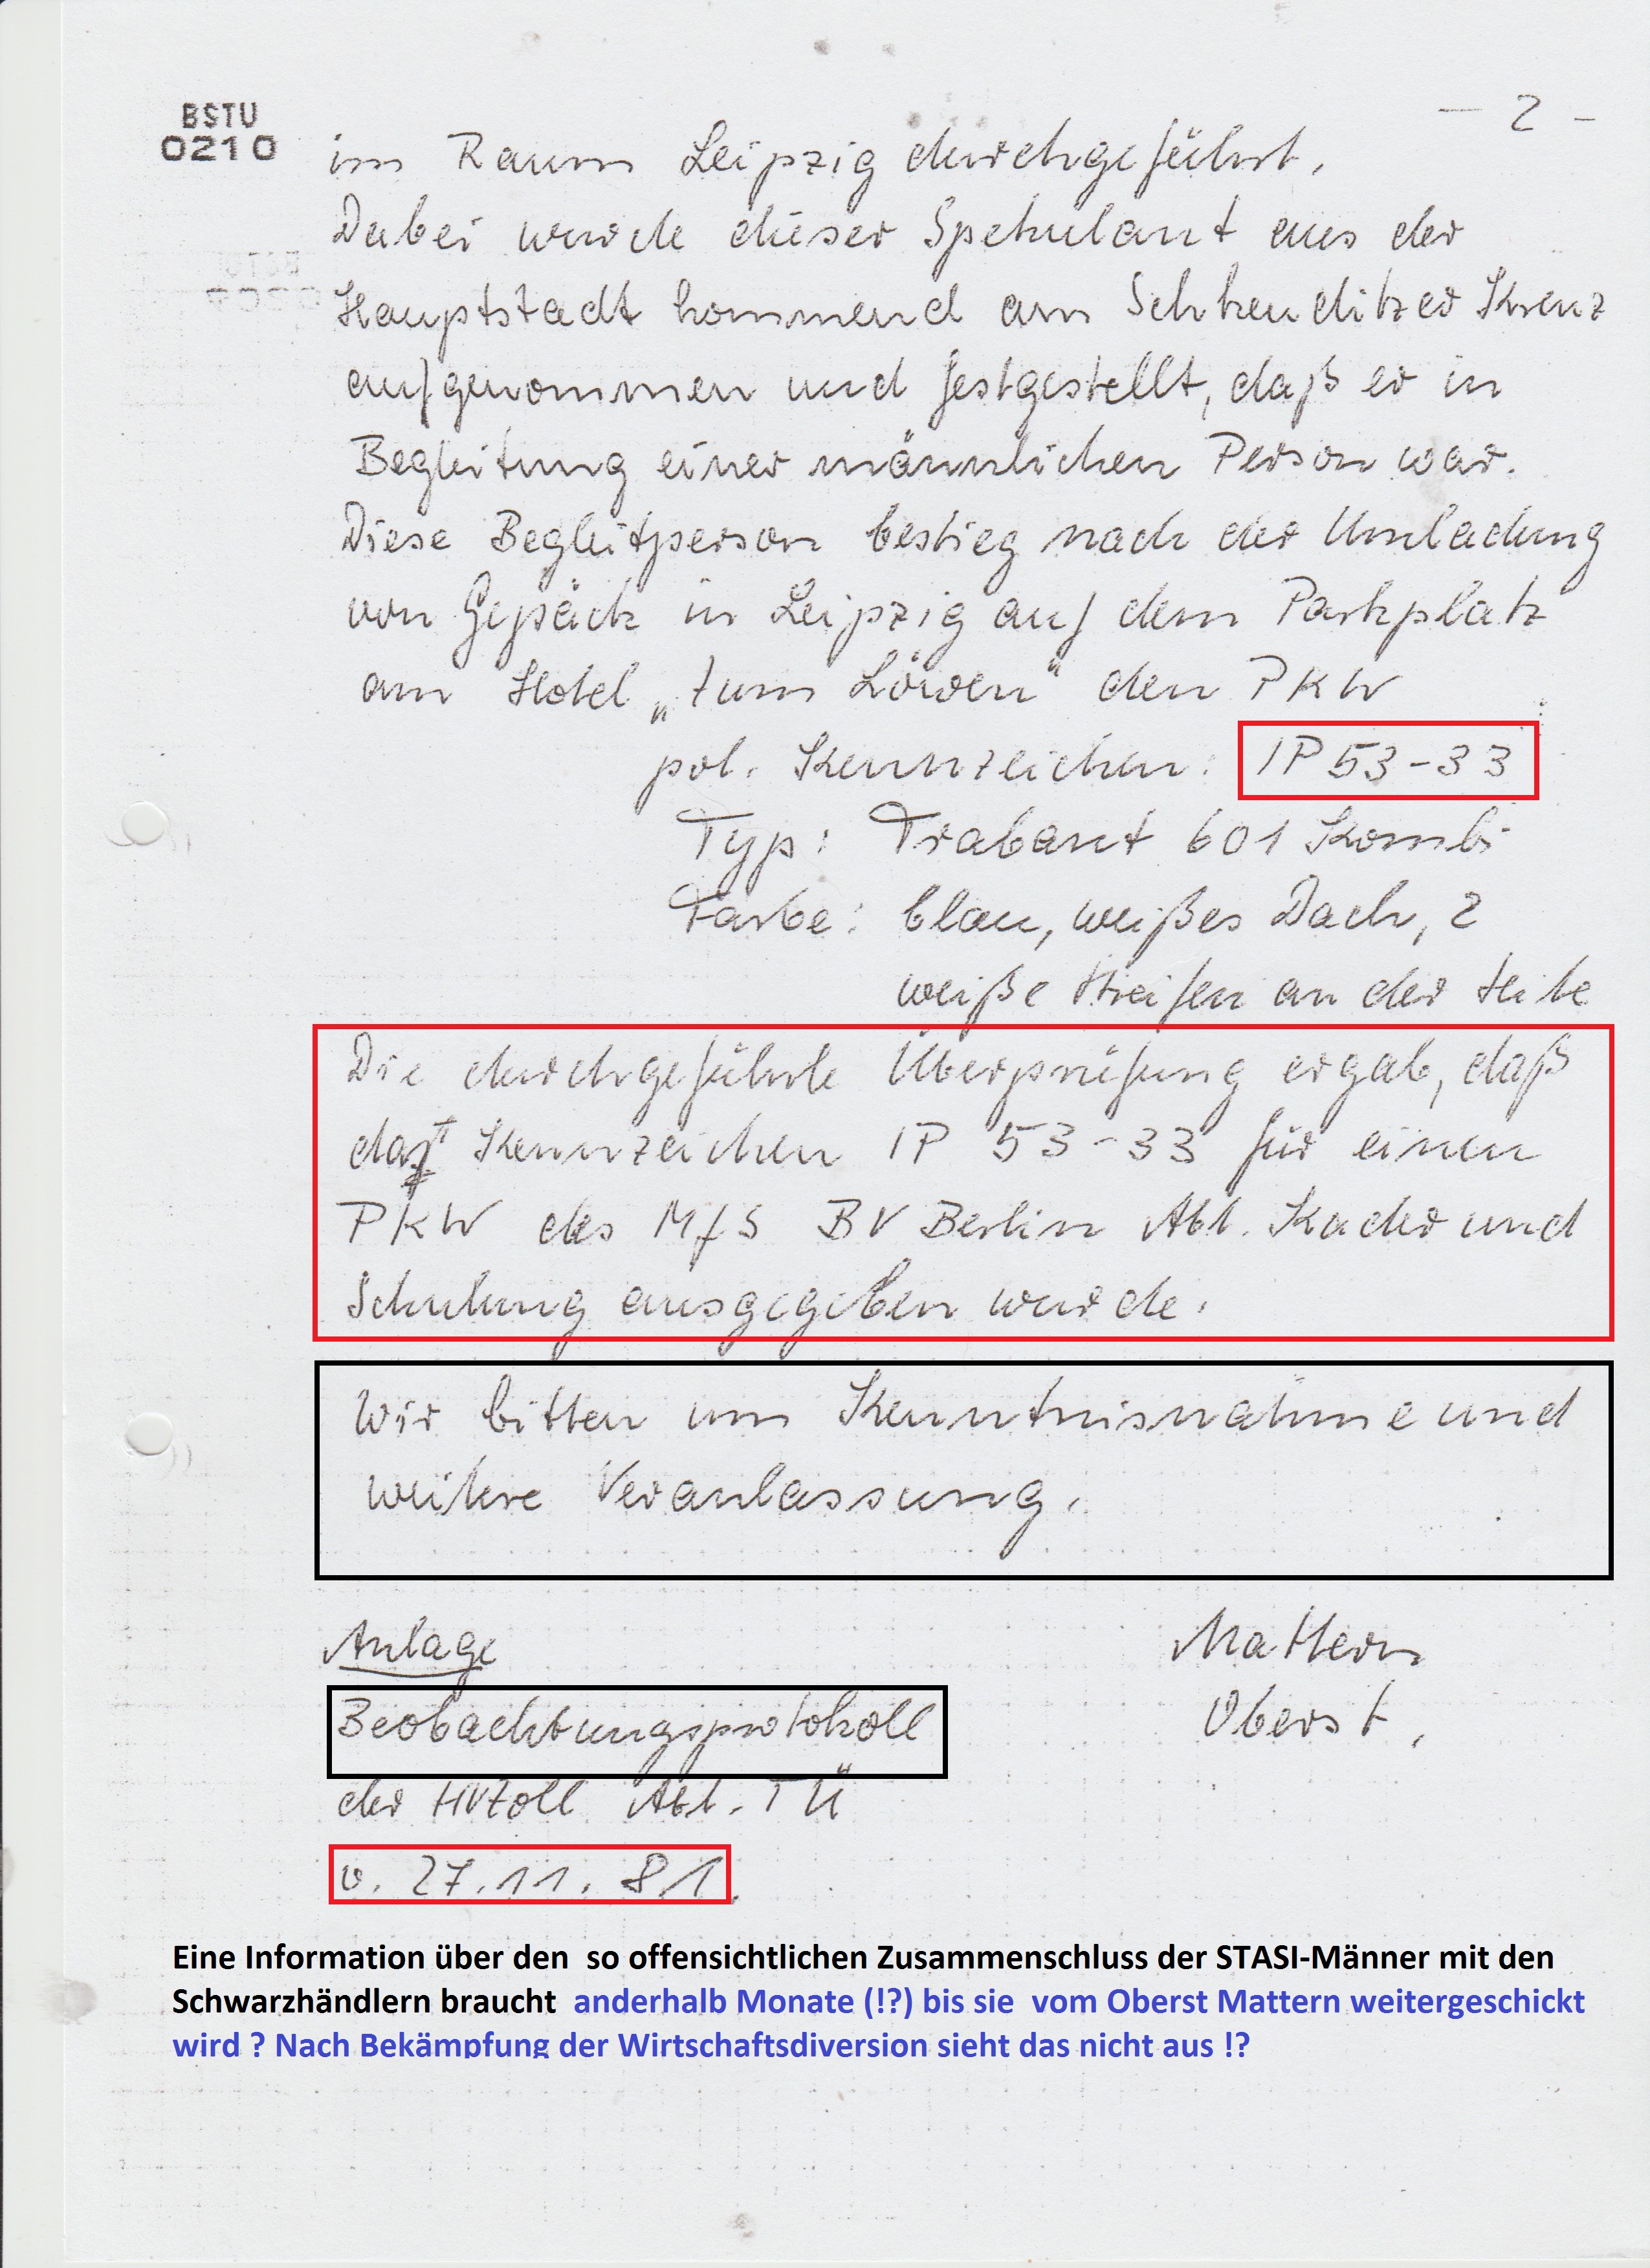 BSTU
0210
— 2 -
im Raum Leipzig durchgeführt.
Dabei wurde dieser Spekulant aus der
Hauptstadt kommend am Schkeuditzer Kreuz
aufgenommen und festgestellt, daß er in
Begleitung einer männlichen Person war.
Diese Begleitperson bestieg nach der Umladung
von Gepäck in Leipzig auf dem Parkplatz
am Hotel „Zum Löwen" den PKW
pol. Kennzeichen: IP 53-33
Typ: Trabant 601 Kombi
Farbe: blau, weißes Dach, 2
weiße Streifen an der Seite
Die durchgeführte Überprüfung ergab, daß
das Kennzeichen IP 53-33 für einen
PKW des MfS BV Berlin Abt. Kader und
Schulung ausgegeben wurde.
Wir bitten um Kenntnisnahme und
weitere Veranlassung.
Anlage
Mattern
Beobachtungsprotokoll
Oberst
der HVZoll Abt. TÜ
v. 27.11.81.
Eine Information über den so offensichtlichen Zusammenschluss der STASI-Männer mit den
Schwarzhändlern braucht anderhalb Monate (!?) bis sie vom Oberst Mattern weitergeschickt
wird ? Nach Bekämpfung der Wirtschaftsdiversion sieht das nicht aus !?